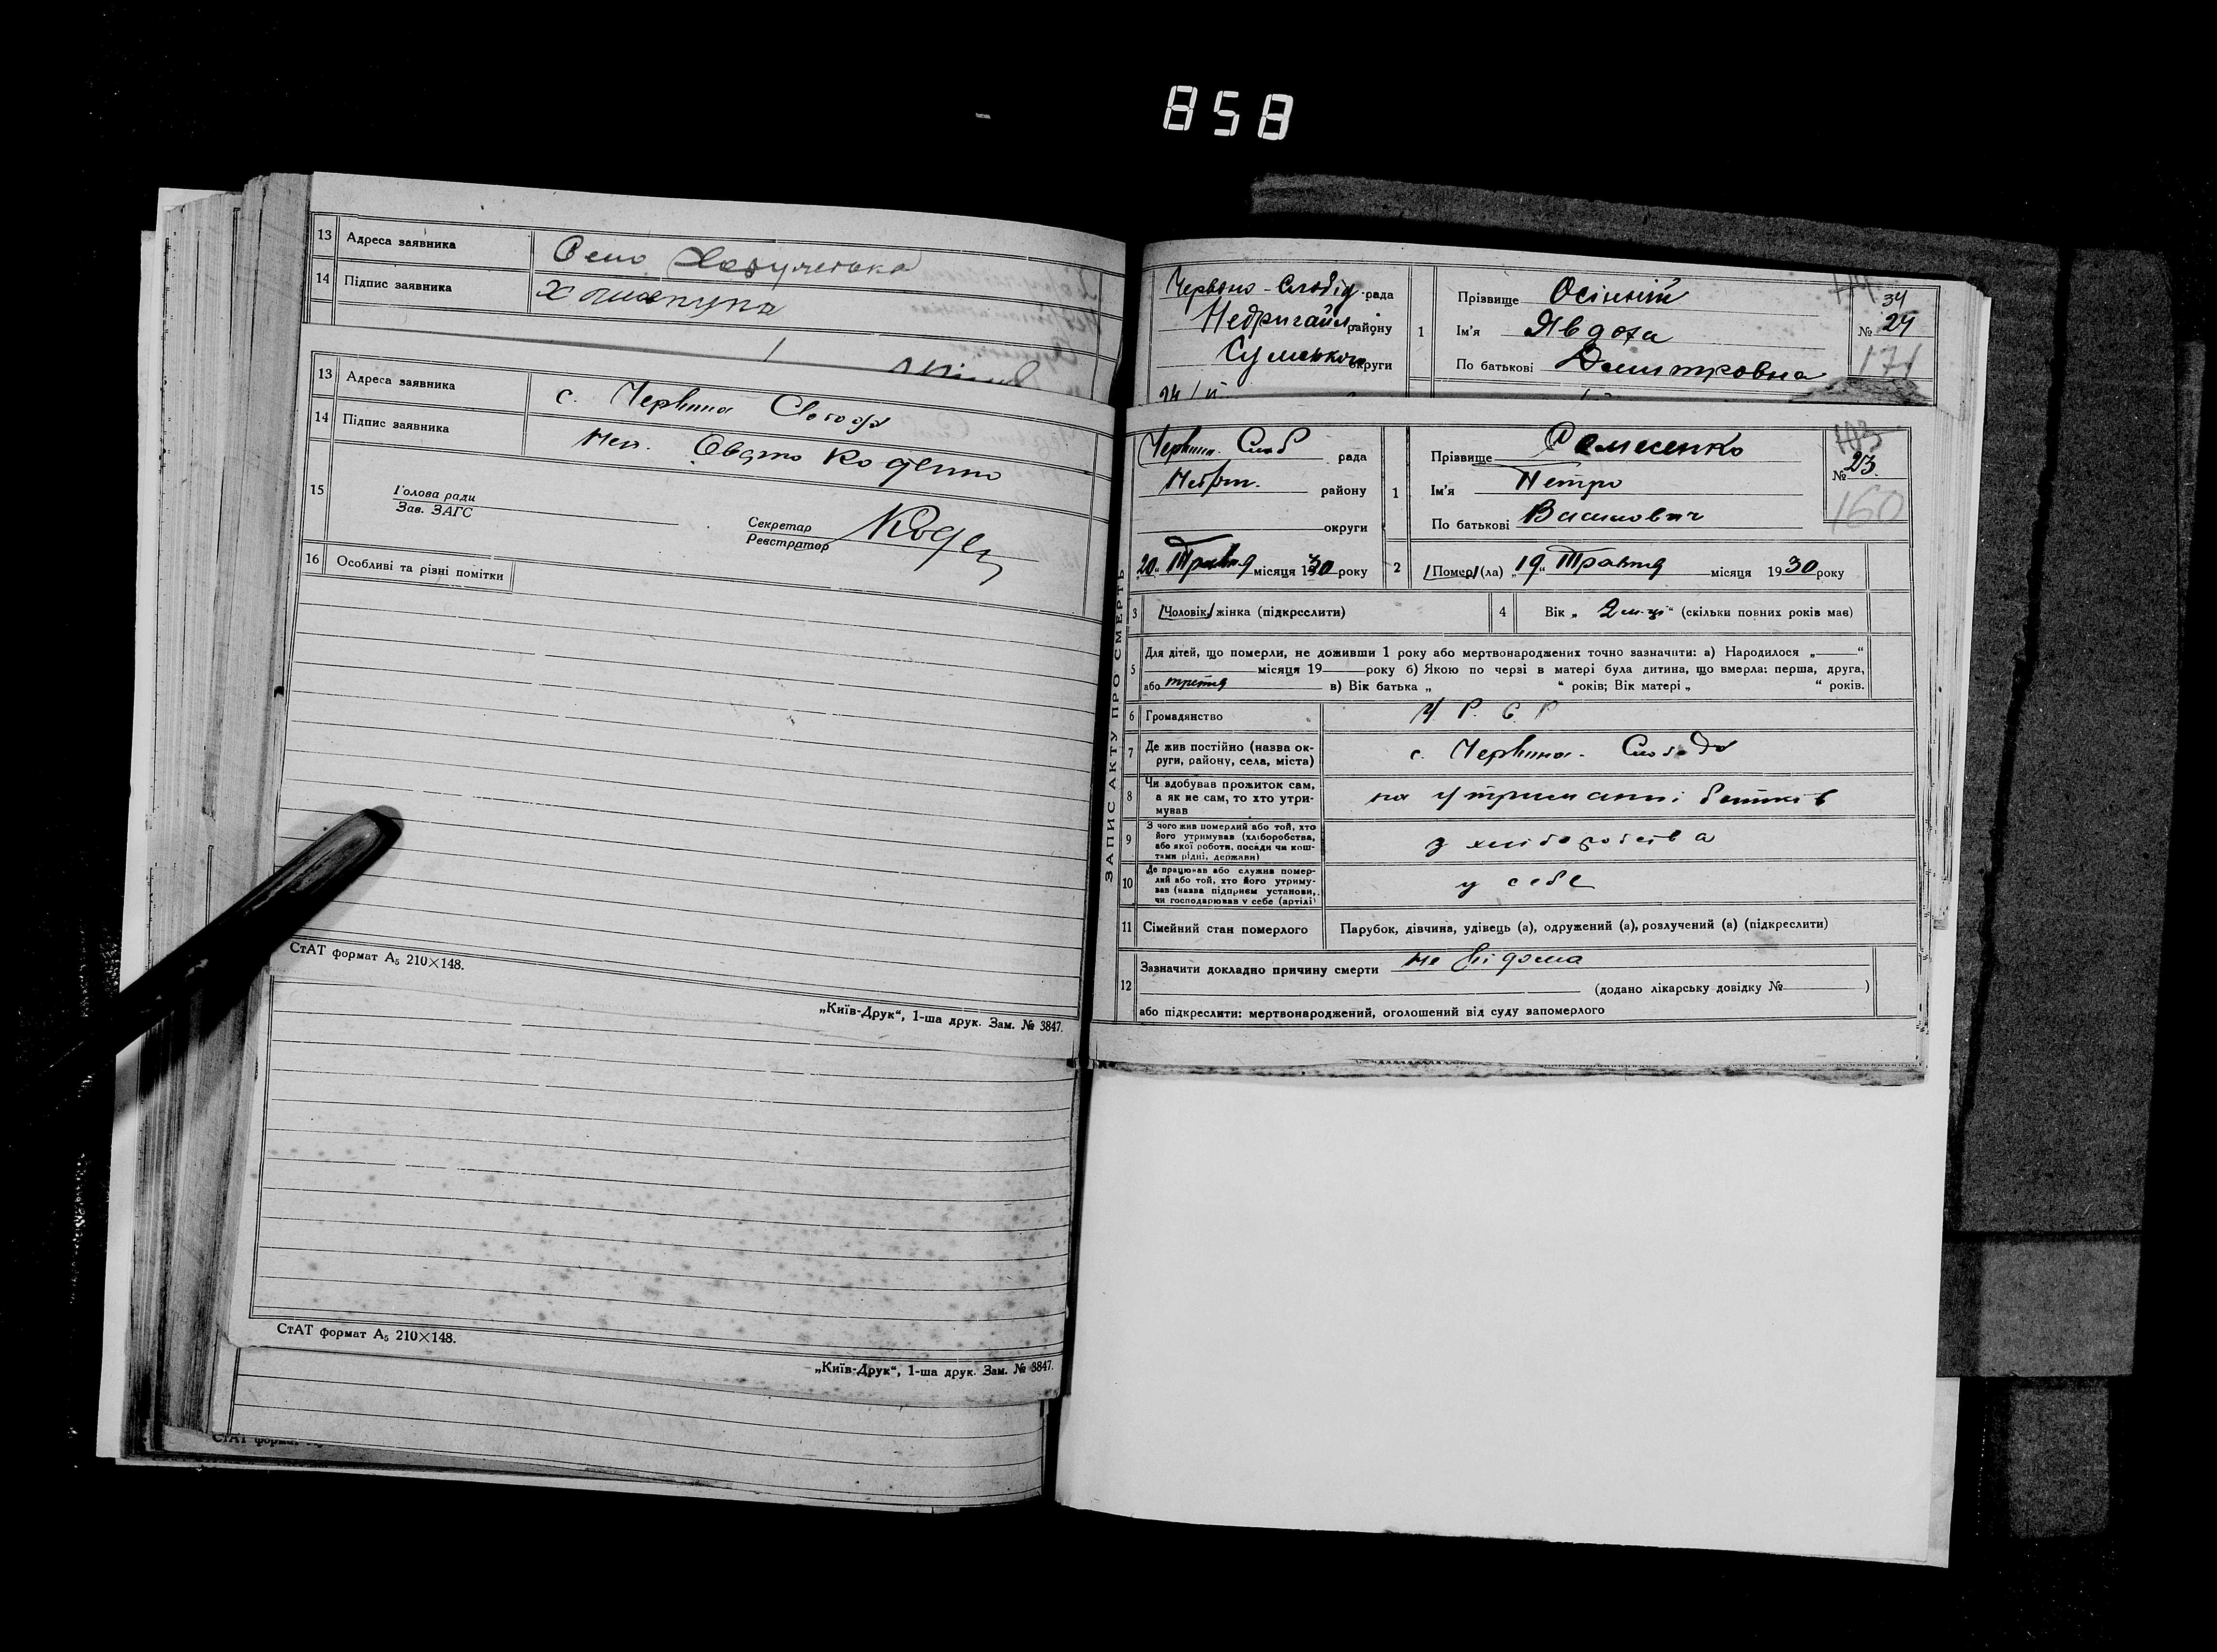 858
13 Адреса заявника Село
14 Підпис заявника
13 Адреса заявника с. Червона Слобода
14 Підпис заявника
15 Голова ради
Зав. ЗАГС
Секретар
Реєстратор
16 Особливі та різні помітки
СтАТ формат А5 210×148.
„Київ-Друк“, 1-ша друк. Зам. № 3847.
СтАТ формат А5 210×148.
„Київ-Друк“, 1-ша друк. Зам. № 3847.
Червоно-Слобід. рада
Недригайл. району
Сумської округи
1 Прізвище Осінній
Ім'я Явдоха
По батькові Демитровна
34
№ 24
171
ЗАПИС АКТУ ПРО СМЕРТЬ
Червон. Слоб рада
Недриг. району
округи
„20“ Травня місяця 1930 року
1 Прізвище
Ім'я Петро
По батькові Василович
№ 23.
160
2 Помер (ла) „19“ Травня місяця 1930 року
3 Чоловік, жінка (підкреслити)
4 Вік „ 2 м-ці “ (скільки повних років має)
5 Для дітей, що померли, не доживши 1 року або мертвонароджених точно зазначити: а) Народилося „ “
місяця 19 року б) Якою по черзі в матері була дитина, що вмерла: перша, друга,
або третя в) Вік батька „ “ років; Вік матері „ “ років.
6 Громадянство У Р. С. Р
7 Де жив постійно (назва ок-
руги, району, села, міста) с. Червона-Слобода
8 Чи здобував прожиток сам,
а як не сам, то хто утри-
мував на утриманні батьків
9 З чого жив померлий або той, хто
його утримував (хліборобства,
або якої роботи, посади чи кош-
тами рідні, держави) з хліборобства
10 Де працював або служив помер-
лий або той, хто його утриму-
вав (назва підприєм установи,
чи господарював у себе (артілі) у себе
11 Сімейний стан померлого Парубок, дівчина, удівець (а), одружений (а), розлучений (а) (підкреслити)
12 Зазначити докладно причину смерти не відома
(додано лікарську довідку № )
або підкреслити: мертвонароджений, оголошений від суду запомерлого